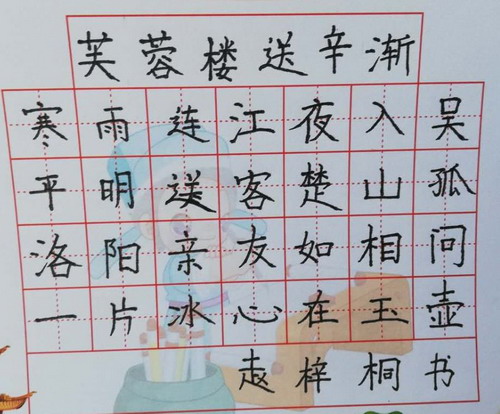 芙蓉楼送辛渐
寒雨连江夜入吴
平明送客楚山孤
洛阳亲友如相问
一片冰心在玉壶
赵梓桐书